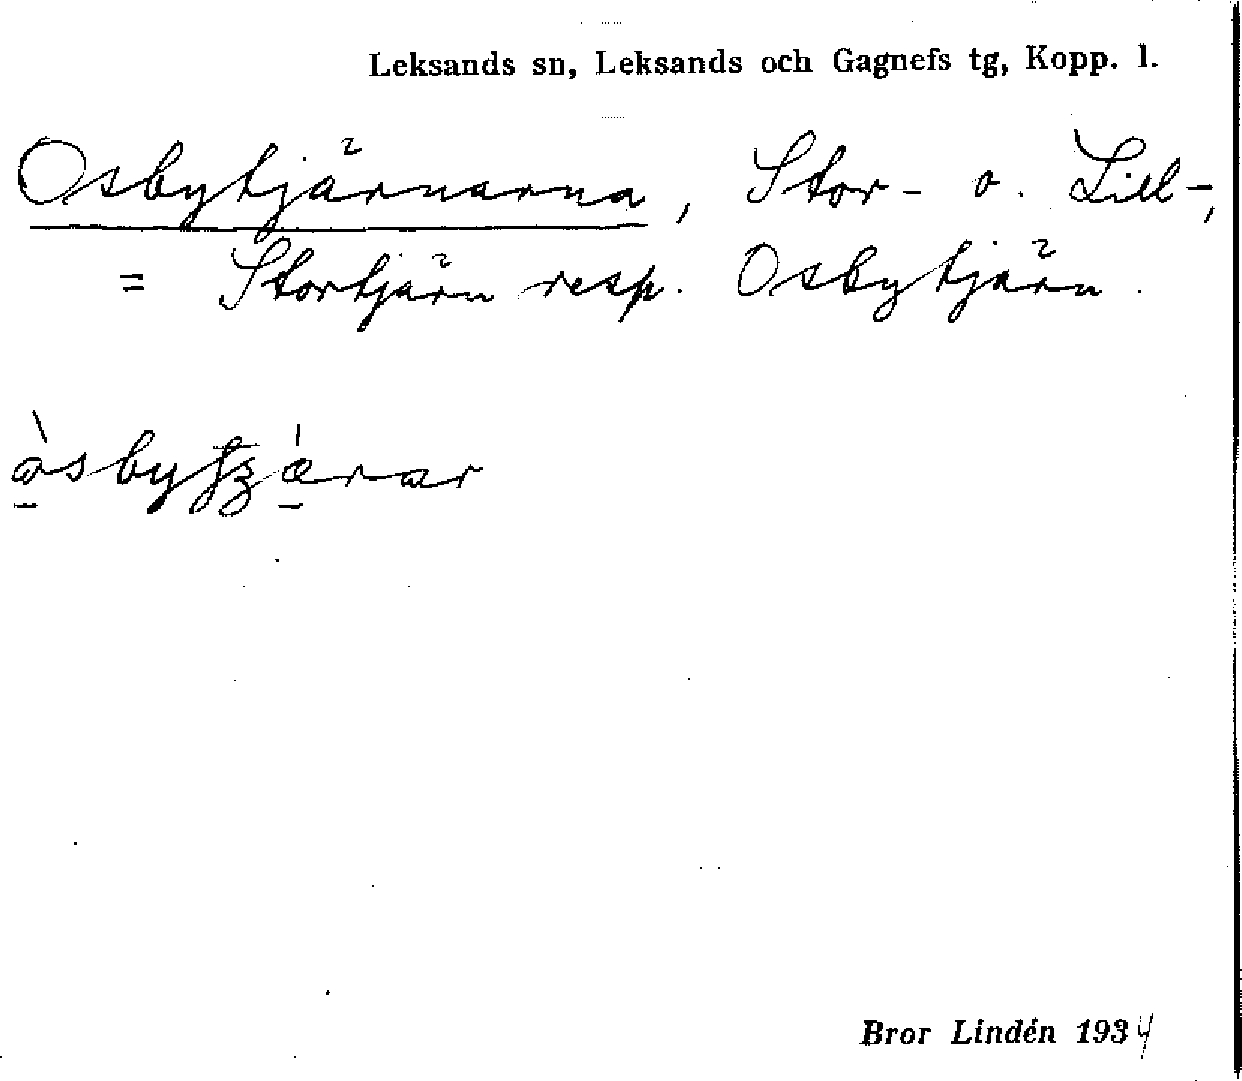 Leksands sn, Leksands och Gagnefs tg, Kopp. l.
Osbytjärnarna, Stor- o. Lill-,
= Stortjärn resp. Osbytjärn.
Bror Lindén 1934